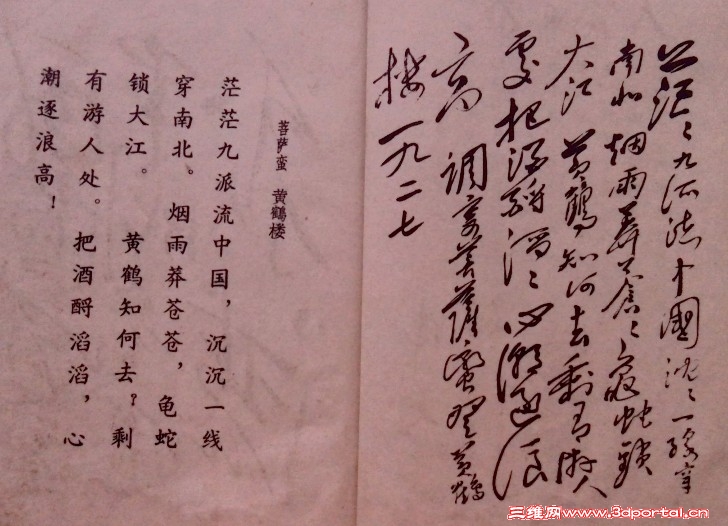 茫々九派流中國沉々一線穿
南北烟雨莽蒼々龜蛇鎖
大江 黄鶴知何去剩有游人
處把酒酹滔々心潮逐浪
高 調寄菩薩蠻登黄鶴
樓 一九二七
菩萨蛮 黄鹤楼
茫茫九派流中国，沉沉一线
穿南北。烟雨莽苍苍，龟蛇
锁大江。 黄鹤知何去？剩
有游人处。把酒酹滔滔，心
潮逐浪高！
三维网www.3dportal.cn